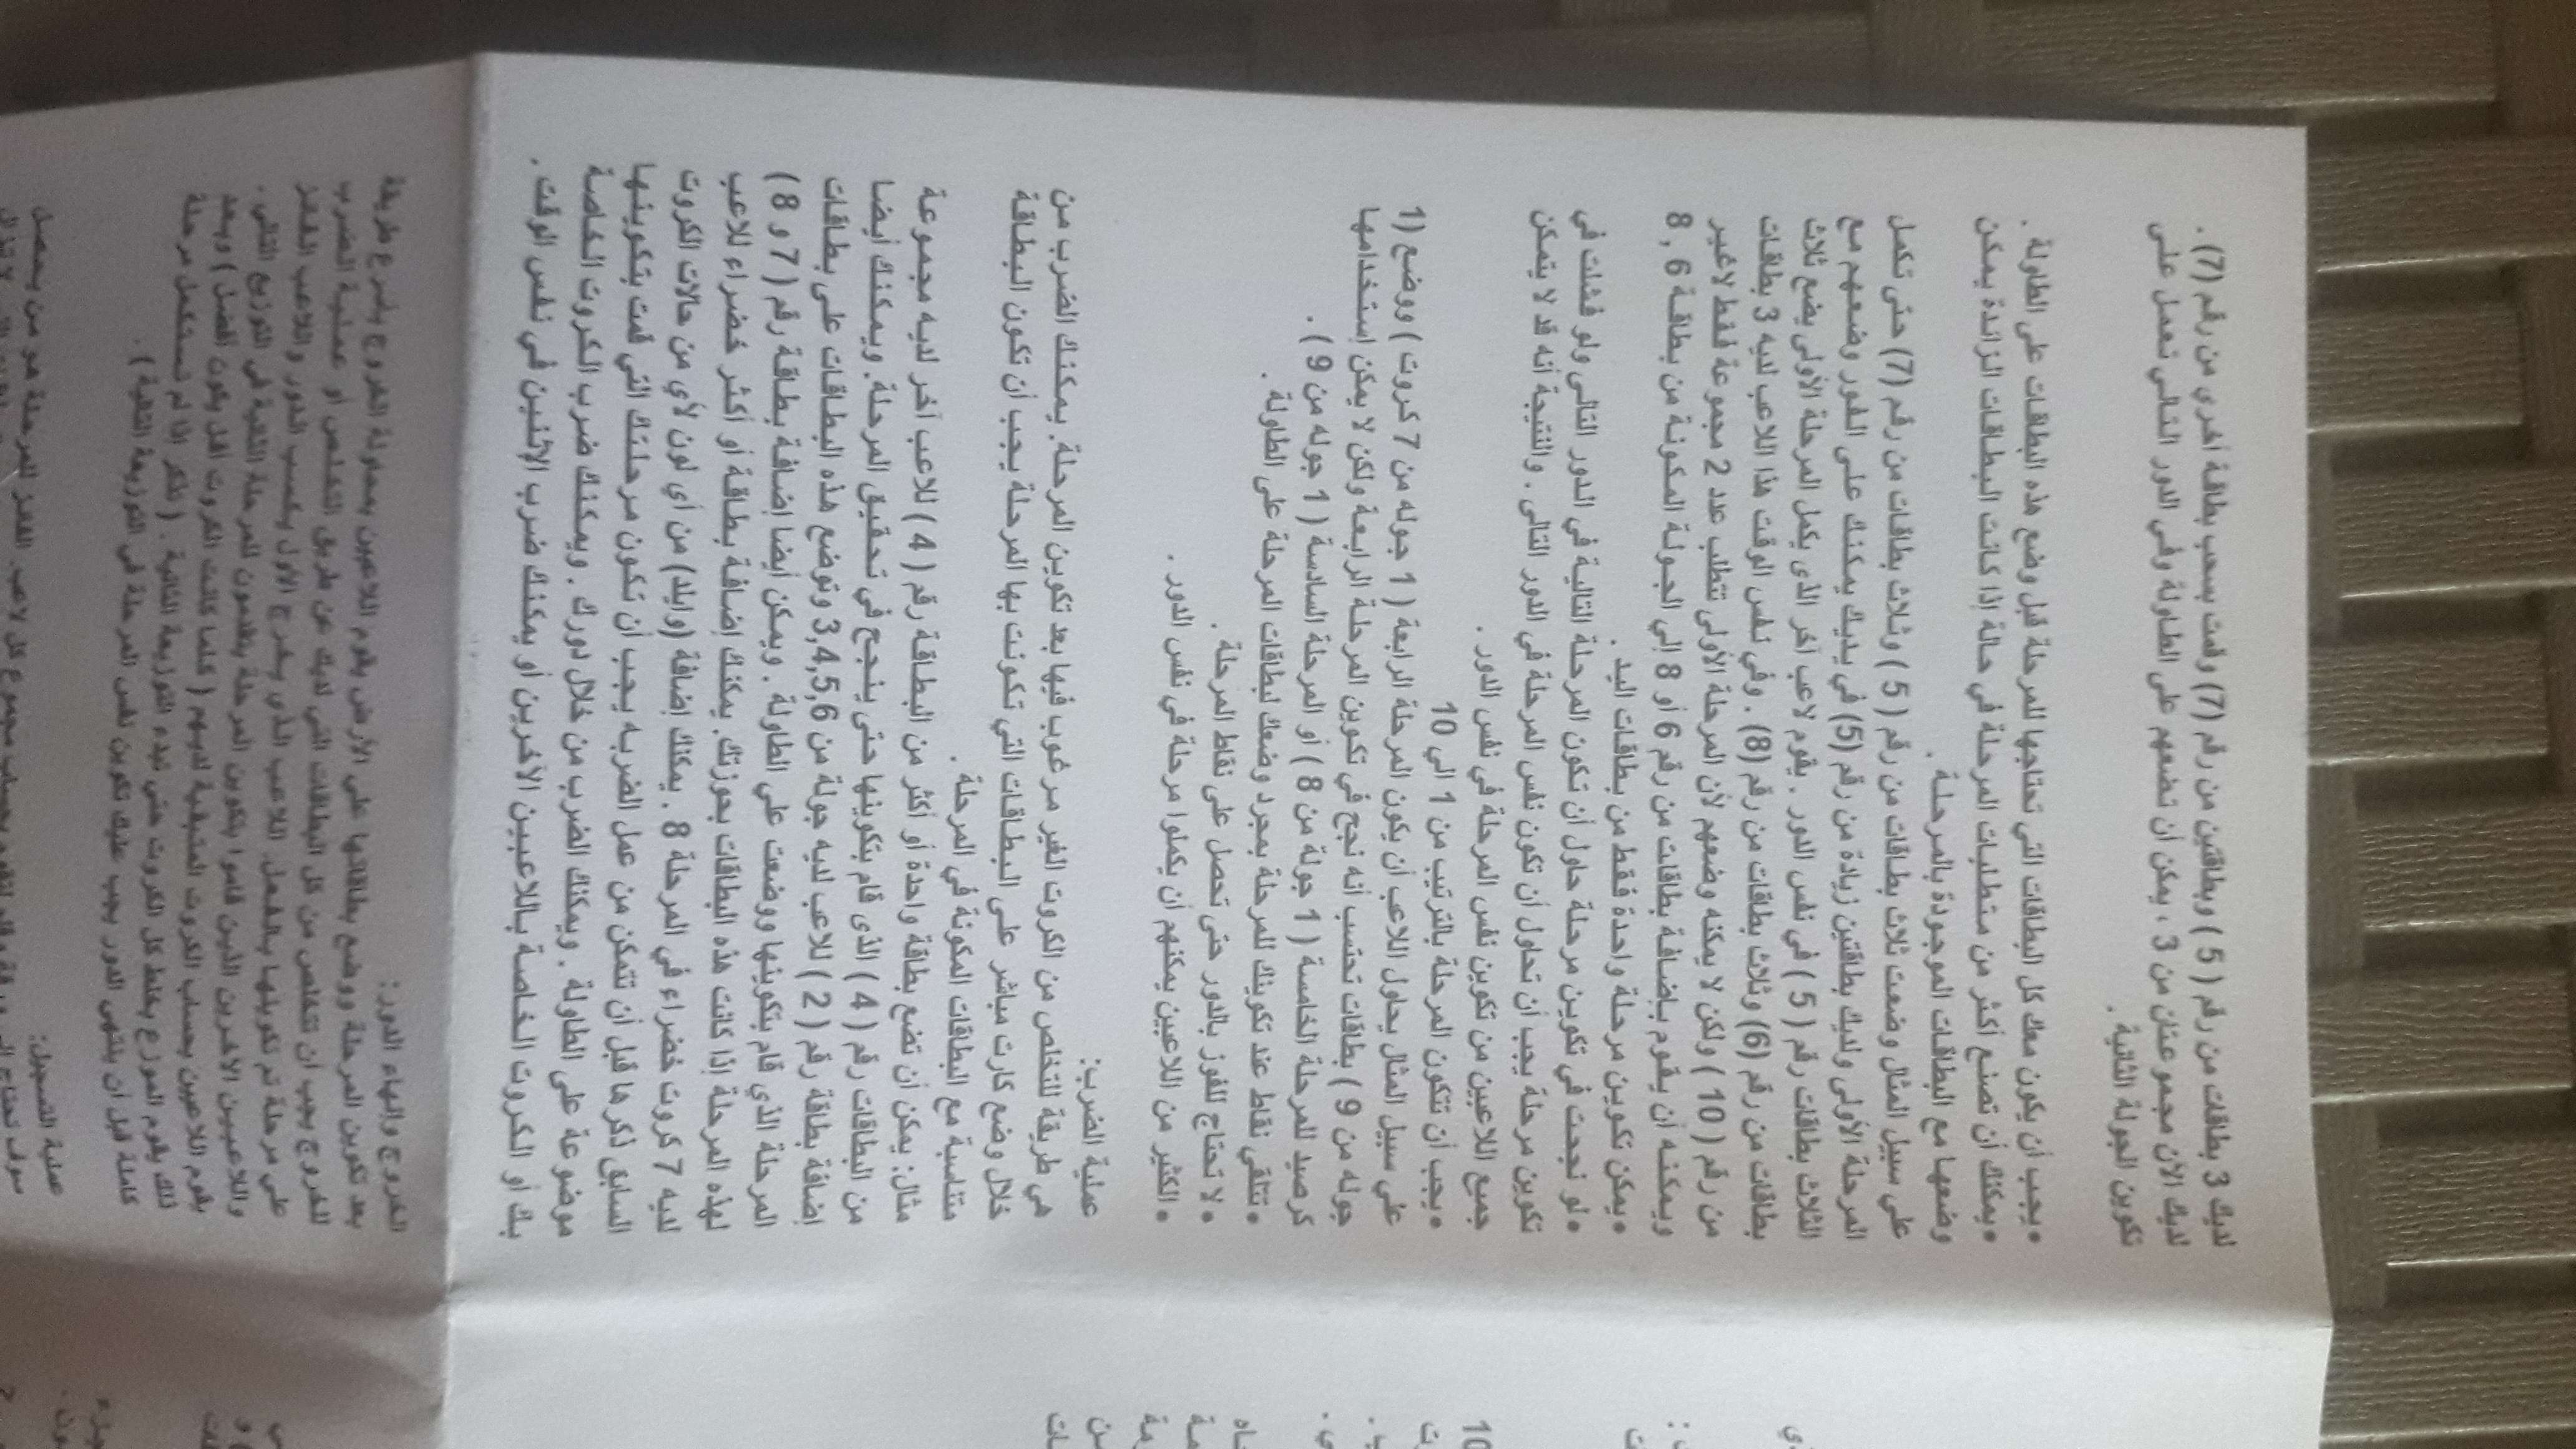 لديك 3 بطاقات من رقم ( 5 ) وبطاقتين من رقم (7) وقمت بسحب بطاقة أخرى من رقم (7) .
لديك الآن مجموعتان من 3 ، يمكن أن تضعهم على الطاولة وفي الدور التالي تعمل على
تكوين الجولة الثانية .
• يجب أن يكون معك كل البطاقات التي تحتاجها للمرحلة قبل وضع هذه البطاقات على الطاولة .
• يمكنك أن تصنع أكثر من متطلبات المرحلة في حالة إذا كانت البطاقات الزائدة يمكن
وضعها مع البطاقات الموجودة بالمرحلة .
على سبيل المثال وضعت ثلاث بطاقات من رقم ( 5 ) وثلاث بطاقات من رقم (7) حتى تكمل
المرحلة الأولى ولديك بطاقتين زيادة من رقم (5) في يديك يمكنك على الفور وضعهم مع
الثلاث بطاقات رقم ( 5 ) في نفس الدور . يقوم لاعب آخر الذى يكمل المرحلة الأولى بضع ثلاث
بطاقات من رقم (6) وثلاث بطاقات من رقم (8) . وفي نفس الوقت هذا اللاعب لديه 3 بطاقات
من رقم ( 10 ) ولكن لا يمكنه وضعهم لأن المرحلة الأولى تتطلب عدد 2 مجموعة فقط لاغير
ويمكنه أن يقوم بإضافة بطاقات من رقم 6 أو 8 إلي الجولة المكونة من بطاقة 6 , 8
• يمكن تكوين مرحلة واحدة فقط من بطاقات اليد .
• لو نجحت في تكوين مرحلة حاول أن تكون المرحلة التالية في الدور التالى ولو فشلت في
تكوين مرحلة يجب أن تحاول أن تكون نفس المرحلة في الدور التالى . والنتيجة أنه قد لا يتمكن
جميع اللاعبين من تكوين نفس المرحلة في نفس الدور .
• يجب أن تتكون المرحلة بالترتيب من 1 الي 10
على سبيل المثال يحاول اللاعب أن يكون المرحلة الرابعة ( 1 جوله من 7 كروت ) ووضع (1
جوله من 9 ) بطاقات تحتسب أنه نجح في تكوين المرحلة الرابعة ولكن لا يمكن إستخدامها
كرصيد للمرحلة الخامسة ( 1 جولة من 8 ) أو المرحلة السادسة ( 1 جوله من 9 ) .
• تتلقي نقاط عند تكوينك للمرحلة بمجرد وضعك لبطاقات المرحلة على الطاولة .
• لا تحتاج للفوز بالدور حتى تحصل على نقاط المرحلة .
• الكثير من اللاعبين يمكنهم أن يكملوا مرحلة في نفس الدور .
عملية الضرب:
هي طريقة للتخلص من الكروت الغير مرغوب فيها بعد تكوين المرحلة. يمكنك الضرب من
خلال وضع كارت مباشر على البطاقات التي تكونت بها المرحلة يجب أن تكون البطاقة
متناسبة مع البطاقات المكونة في المرحلة .
مثال: يمكن أن تضع بطاقة واحدة أو أكثر من البطاقة رقم ( 4 ) للاعب آخر لديه مجموعة
من البطاقات رقم ( 4 ) الذى قام بتكوينها حتى ينجح في تحقيق المرحلة. ويمكنك أيضا
إضافة بطاقة رقم ( 2 ) للاعب لديه جولة من 3,4,5,6 وتوضع هذه البطاقات على بطاقات
المرحلة الذي قام بتكوينها ووضعت علي الطاولة . ويمكن أيضا إضافة بطاقة رقم ( 7 و 8 )
لهذه المرحلة إذا كانت هذه البطاقات بحوزتك. يمكنك إضافة بطاقة أو أكثر خضراء للاعب
لديه 7 كروت خضراء في المرحلة 8 . يمكنك إضافة (وايلد) من أي لون لأي من حالات الكروت
السابق ذكرها قبل أن تتمكن من عمل الضربه يجب أن تكون مرحلتك التي قمت بتكوينها
موضوعة على الطاولة . ويمكنك الضرب من خلال دورك . ويمكنك ضرب الكروت الخاصة
بك أو الكروت الخاصة باللاعبين الآخرين أو يمكنك ضرب الإثنين في نفس الوقت .
الخروج وإنهاء الدور:
بعد تكوين المرحلة ووضع بطاقاتها على الأرض يقوم اللاعبين بمحاولة الخروج بأسرع طريقة
للخروج يجب ان تتخلص من كل البطاقات التي لديك عن طريق التخلص أو عملية الضرب
على مرحلة تم تكوينها بالفعل. اللاعب الذي يخرج الأول يكسب الدور واللاعب
واللاعبين الآخرين الذين قاموا بتكوين المرحلة يتقدمون للمرحلة التالية في التوزيع التالي .
يقوم اللاعبين بحساب الكروت المتبقية لديهم ( كلما كانت الكروت أقل يكون أفضل ) وبعد
ذلك يقوم الموزع بخلط كل الكروت حتى تبدء التوزيعة التالية . ( تذكر إذا لم تستكمل مرحلة
كاملة قبل أن ينتهى الدور يجب عليك تكوين نفس المرحلة في التوزيعة التالية ) .
عملية التسجيل:
سوف تحتاج إلى ورقة وقلم لتقوم بحساب مجموع كل لاعب. الفائز للمرحلة هو من يحصل
10